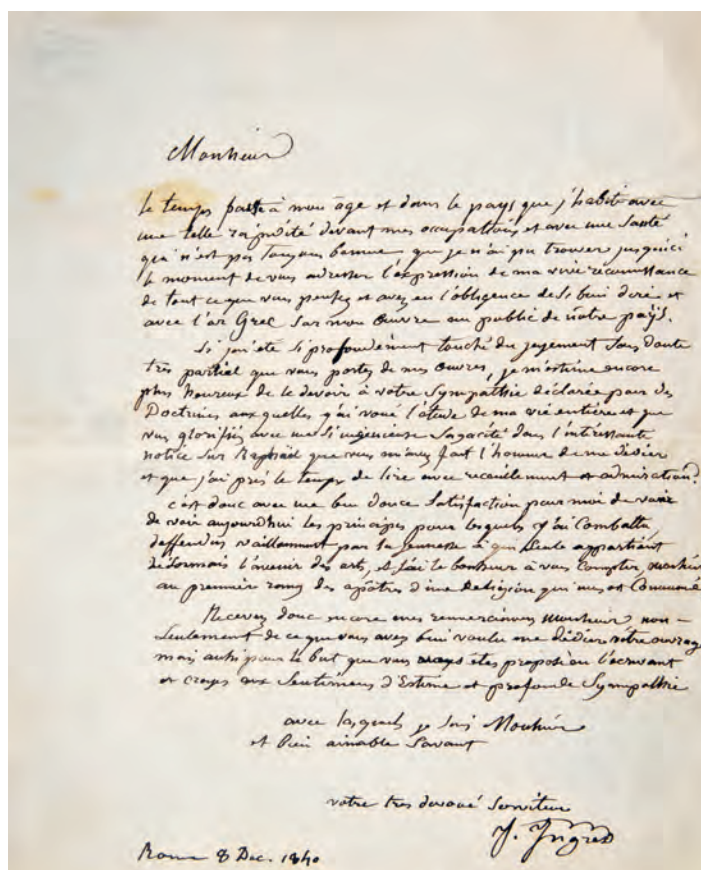 Monsieur
le temps passe à mon âge et dans le pays que j'habite avec
une telle rapidité devant mes occupations et avec une santé
qui n'est pas toujours bonne que je n'ai pu trouver jusqu'ici
le moment de vous adresser l'expression de ma vive reconnaissance
de tout ce que vous pensez et avez eu l'obligence de si bien dire et
avec l'ar Grec sur mon œuvre au public de notre pays.
Si j'ai été si profondément touché du jugement sans doute
très partial que vous portes de mes œuvres, je m'estime encore
plus heureux de le devoir à votre sympathie déclarée pour des
Doctrines auxquelles j'ai voué l'étude de ma vie entière et que
vous glorifiés avec une si ingenieuse sagacité dans l'intéressante
notice sur Raphaël que vous m'avez fait l'honneur de me dédier
et que j'ai pris le temps de lire avec recueillement et admiration.
c'est donc avec une bien douce satisfaction pour moi de
de voir aujourdhui les principes pour lesquels j'ai combattu,
deffendus vaillamment par la jeunesse à qui seule appartient
désormais l'avenir des arts, et j'ai le bonheur à vous compter, monsieur
au premier rang des apôtres d'une Religion qui nous est commune
Recevez donc encore mes remerciemens monsieur, non-
seulement de ce que vous avez bien voulu me dédier votre ouvrage
mais aussi pour le but que vous êtes proposé en l'écrivant
et croyes aux sentimens d'Estime et profonde Sympathie
avec lesquels je suis Monsieur
et bien aimable Savant
votre tres devoué serviteur
J. Ingres
Rome 8 Dec. 1840